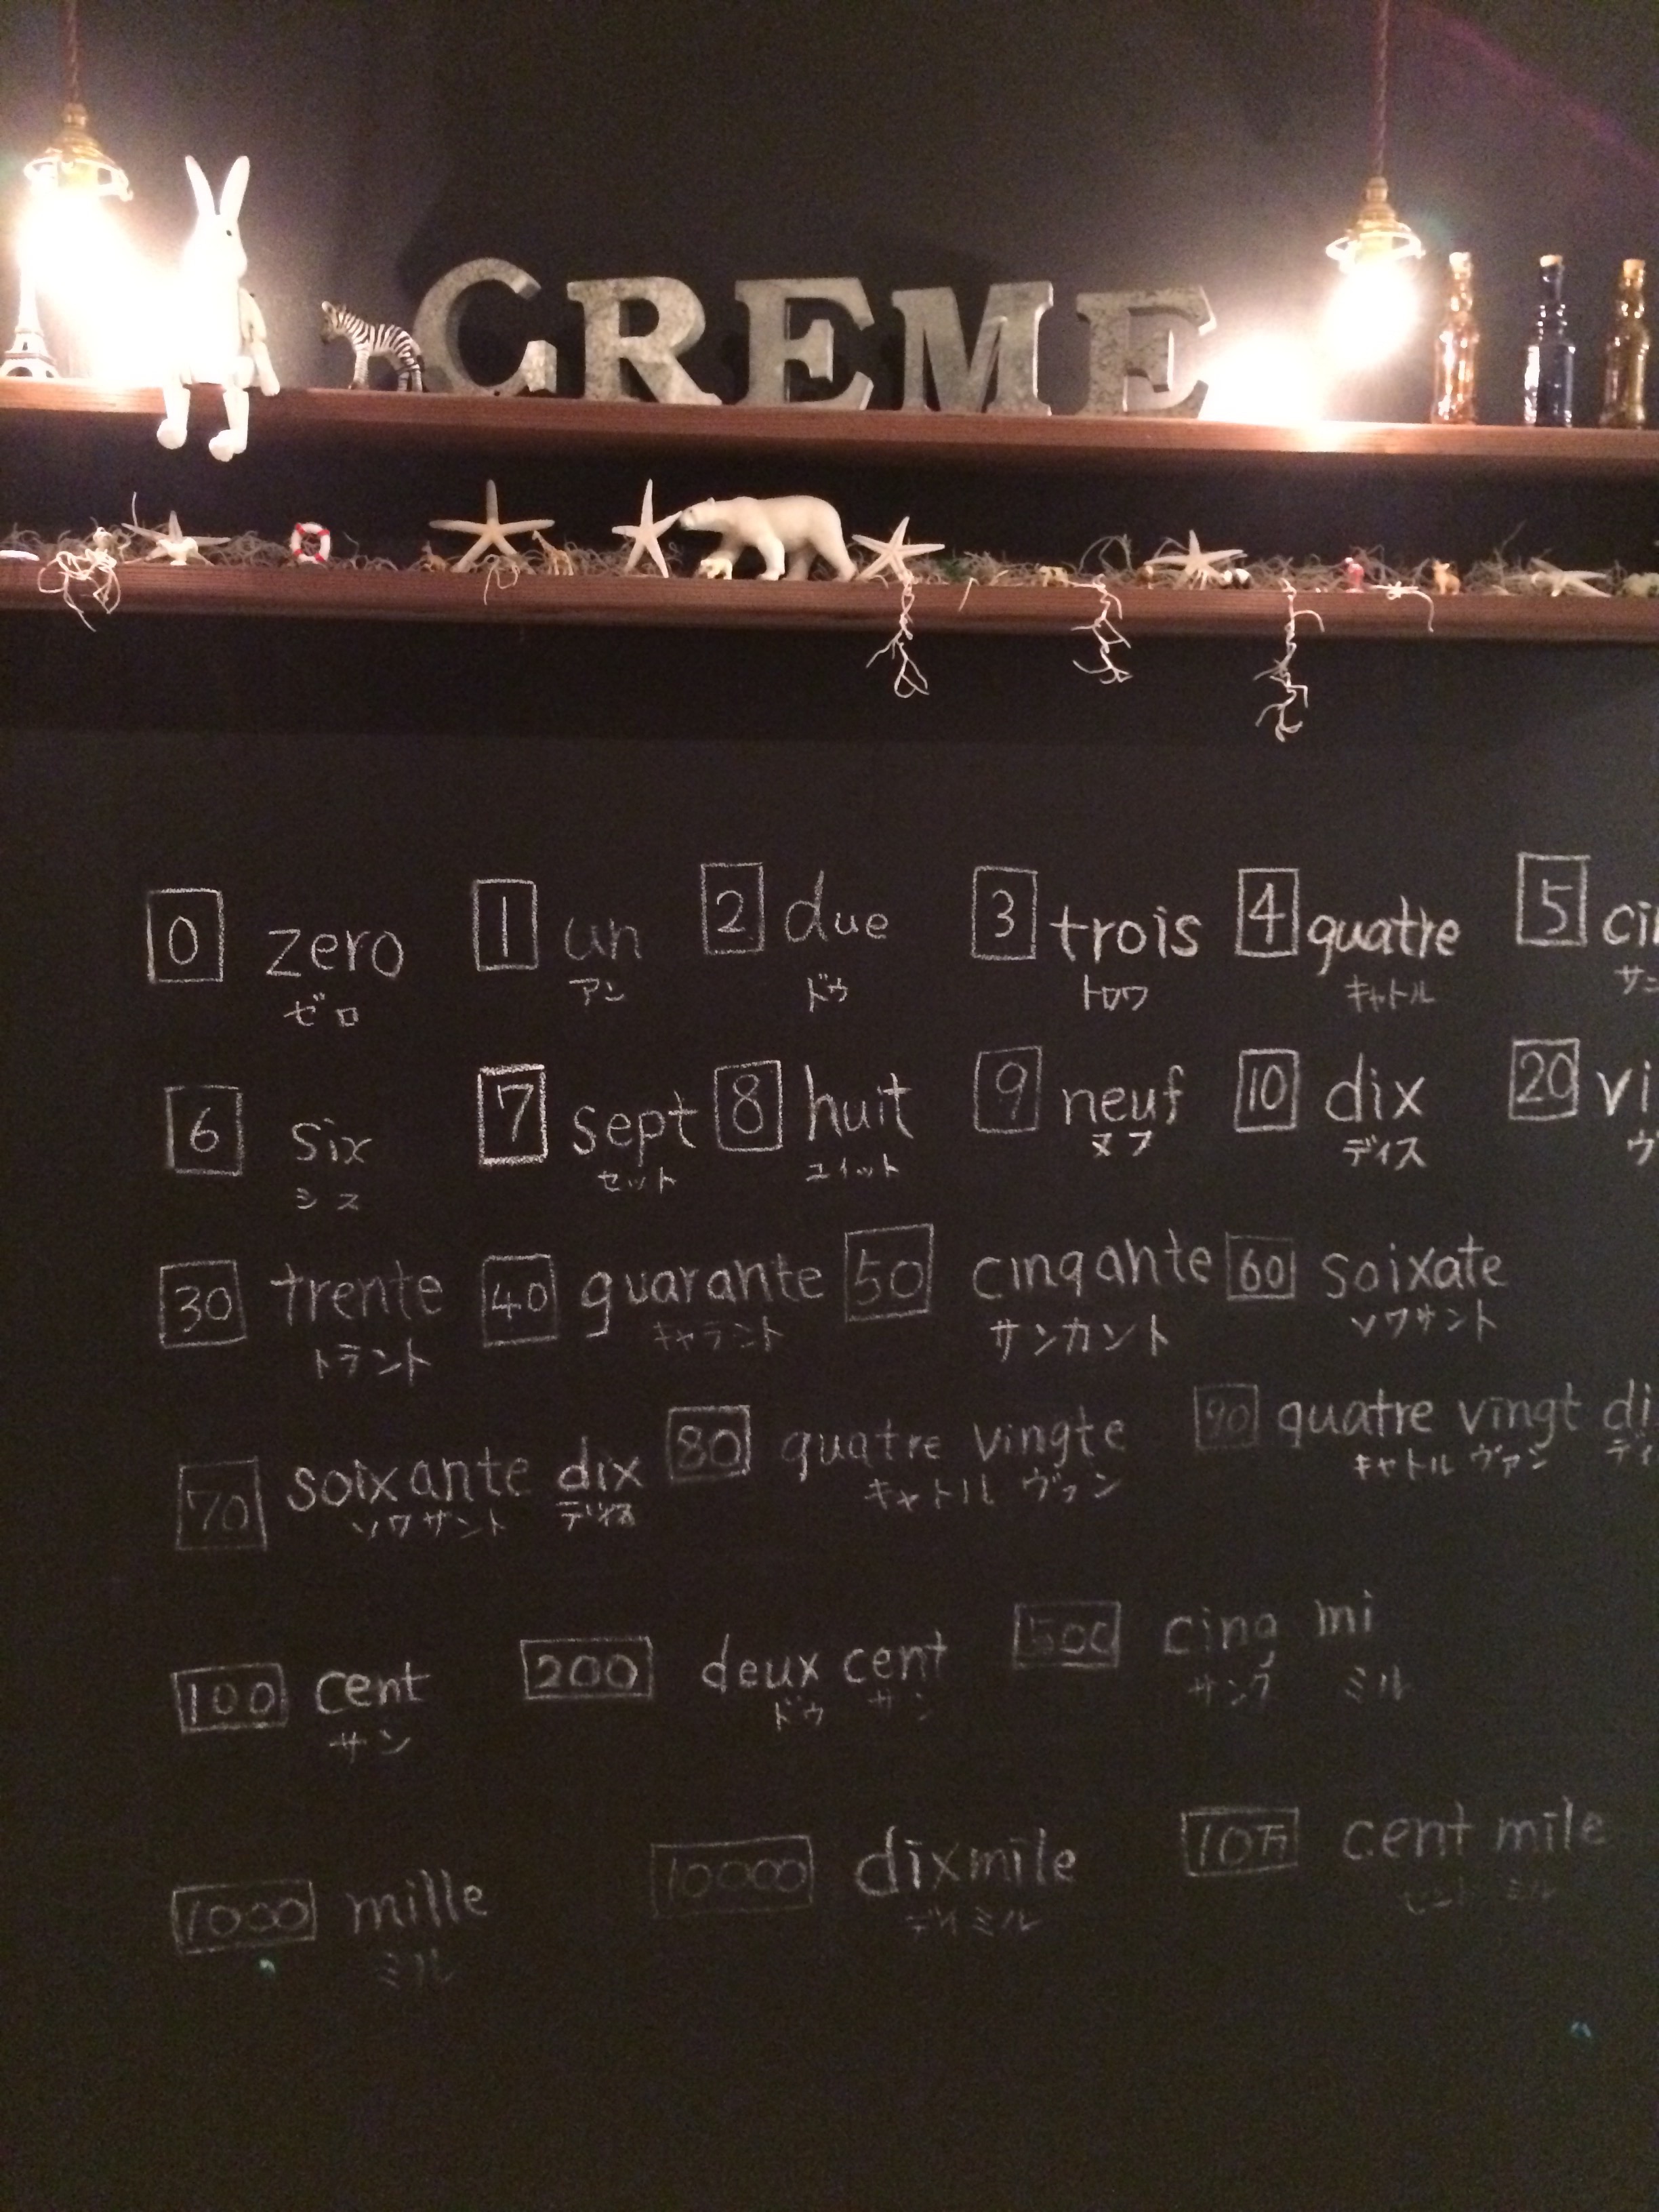 CREME
0 zero 1 un 2 due 3 trois 4 quatre 5
ゼロ アン ドゥ トロワ キャトル
6 six 7 sept 8 huit 9 neuf 10 dix 20
シス セット ユイット ヌフ ディス
30 trente 40 quarante 50 cinqante 60 soixate
トラント キャラント サンカント ソワサント
70 soixante dix 80 quatre vingte 90 quatre vingt
ソワサント キャトル ヴァン キャトル ヴァン
100 cent 200 deux cent 500 cinq mi
サン ドゥ サン サンク ミル
1000 mille 10000 dix mile 10万 cent mile
ミル ディミル ミル